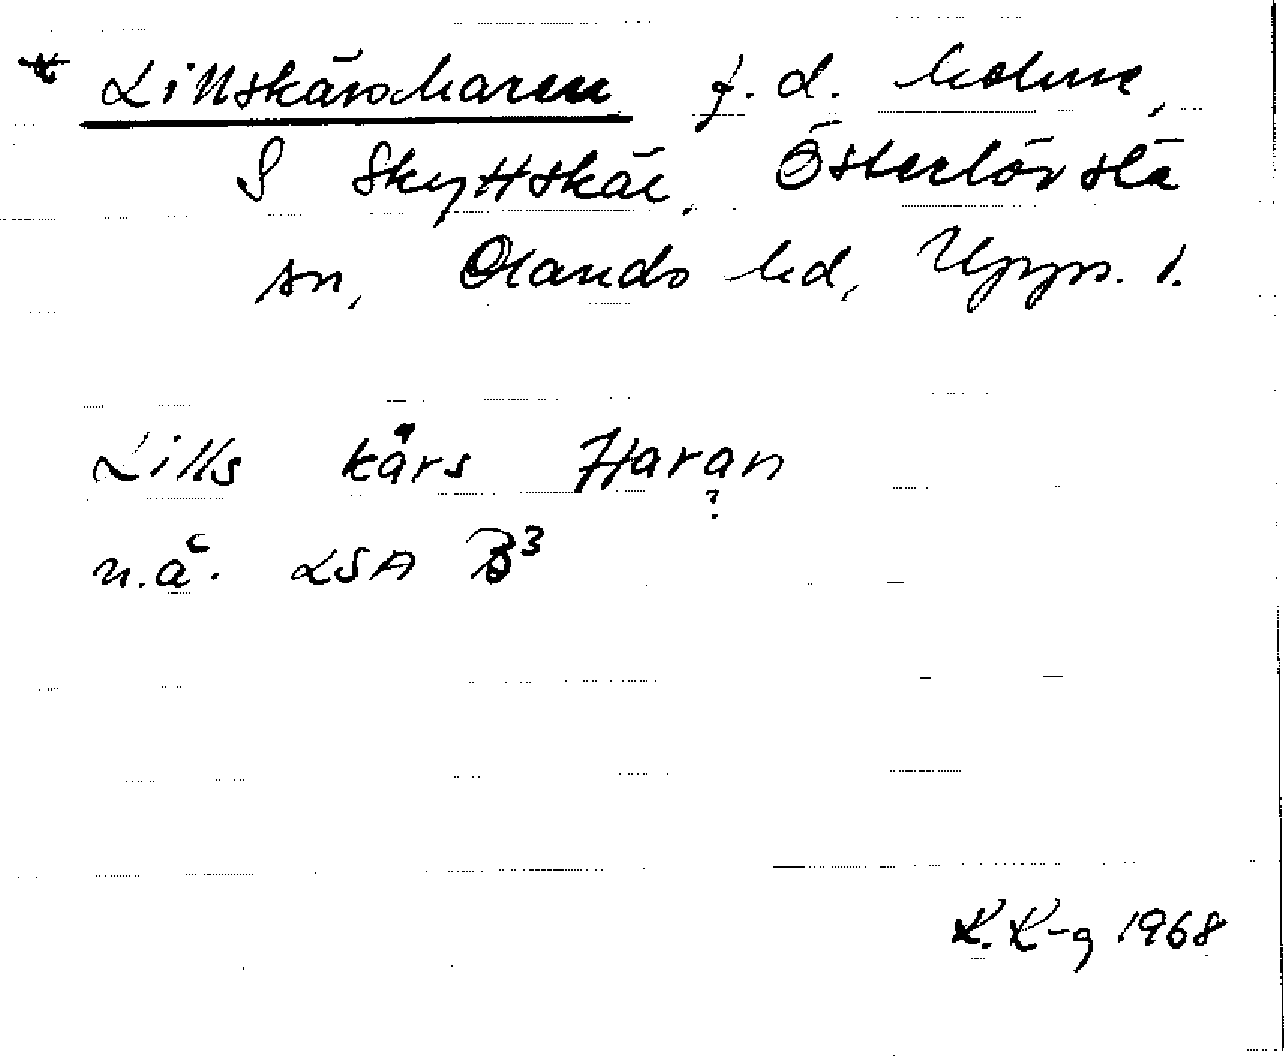 * Lillskärsharen f.d. holme,
S Skyttskär, Österlövsta
sn, Olands hd, Upps. l.
Lills kårs Haran
?
n.ä. LSA B3
K. K-g 1968